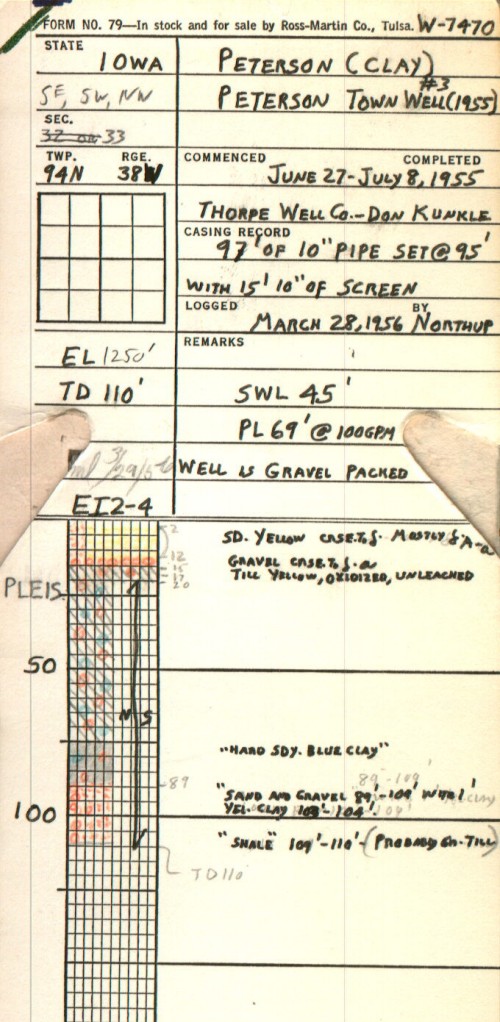 FORM NO. 79—In stock and for sale by Ross-Martin Co., Tulsa. W-7470
STATE
IOWA
PETERSON (CLAY)
#3
SE, SW, NW
PETERSON TOWN WELL (1955)
SEC.
32 or 33
TWP. RGE.
94N 38W
COMMENCED COMPLETED
JUNE 27-JULY 8, 1955
THORPE WELL CO.-DON KUNKLE
CASING RECORD
97' OF 10" PIPE SET @ 95'
WITH 15' 10" OF SCREEN
LOGGED BY
MARCH 28, 1956 NORTHUP
REMARKS
EL 1250'
TD 110'
SWL 45'
PL 69' @ 100GPM
WELL IS GRAVEL PACKED
EI2-4
2
SD. YELLOW CRSE. TO f. MOSTLY
12
GRAVEL CRSE. TO f. -a
15
17
TILL YELLOW, OXIDIZED, UNLEACHED
20
PLEIS.
50
N S
"HARD SDY. BLUE CLAY"
89
89'-109'
"SAND AND GRAVEL 89'-109' WITH 1'
YEL. CLAY 103'-104'.
100
"SHALE" 109'-110'-(PROBABLY GR. TILL)
TD 110